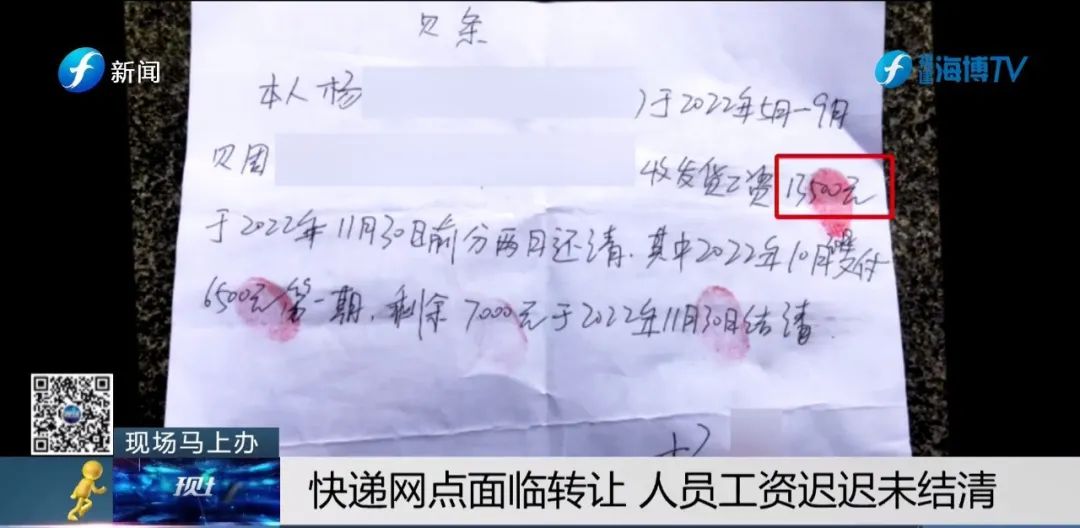 新闻
海博TV
欠条
本人杨
)于2022年5月-9月
欠周
收发货工资13500元
于2022年11月30日前分两月还清.其中2022年10月付
6500元第一期,剩余7000元于2022年11月30日结清.
现场马上办
快递网点面临转让 人员工资迟迟未结清